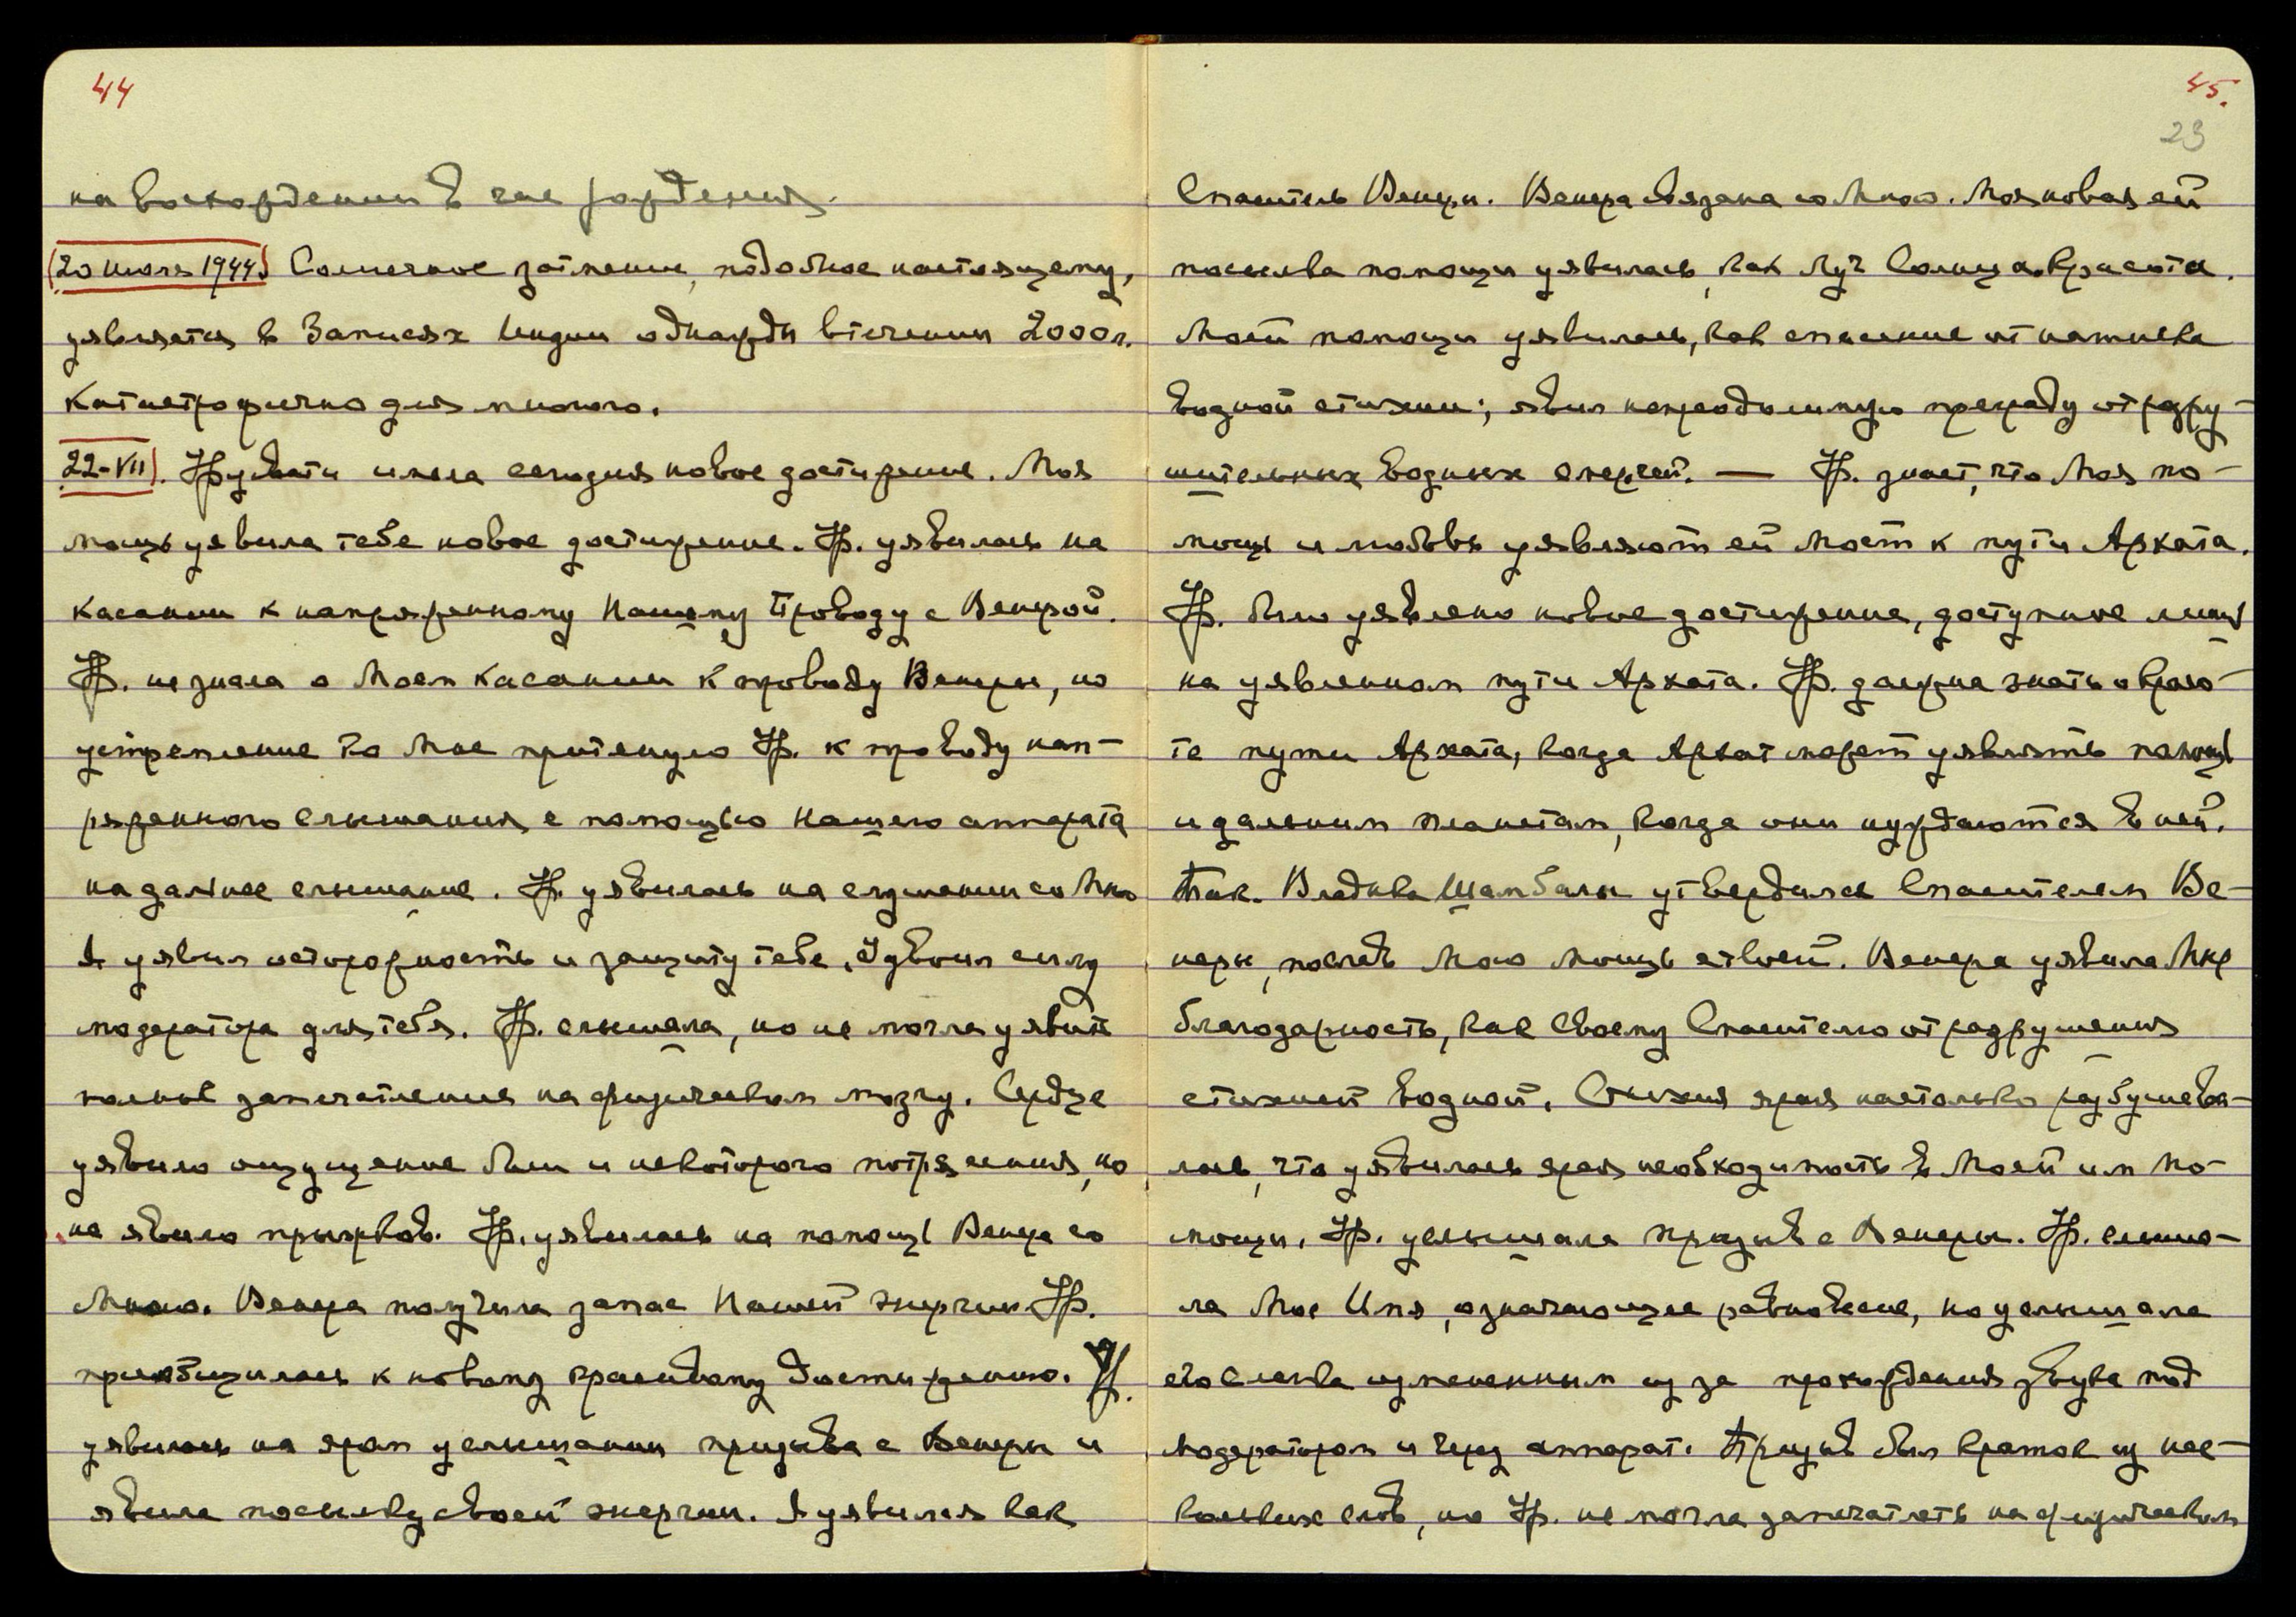 44
на восхождении в час рождения.
(20 июля 1944) Солнечное затмение, подобное настоящему,
уявляется в Записях Индии однажды втечении 2000 л.
Катастрофично для многого.
22-VII). Урувати имела сегодня новое достижение. Моя
мощь уявила тебе новое достижение. Ур. уявилась на
касании к напряженному Нашему Проводу с Венерой.
Ур. не знала о Моем касании к проводу Венеры, но
устремление ко Мне притянуло Ур. к проводу нап-
ряженного слышания с помощью Нашего аппарата
на дальнее слышание. Ур. уявилась на слушании со Мною
Я уявил осторожность и защиту тебе. Я удвоил силу
модератора для тебя. Ур. слышала, но не могла уявить
полное запечатление на физическом мозгу. Сердце
уявило ощущение боли и некоторого потрясения, но
не явило прыжков. Ур. уявилась на помощь Венере со
Мною. Венера получила запас Нашей энергии. Ур.
приобщилась к новому красивому достижению. Ур.
уявилась на яром услышании призыва с Венеры и
явила посылку своей энергии. Я уявился как
45.
23
Спаситель Венеры. Венера связана со Мною. Моя новая ей
посылка помощи уявилась, как Луч Солнца. Красота
Моей помощи уявилась, как спасение от натиска
водной стихии; явил непреодолимую преграду от разру-
шительных водных смерчей. — Ур. знает, что Моя по-
мощь и любовь уявляют ей мост к пути Архата.
Ур. было уявлено новое достижение, доступное лишь
на уявленном пути Архата. Ур. должна знать о красо-
те пути Архата, когда Архат может уявлять помощь
и дальним планетам, когда они нуждаются в ней.
Так. Владыка Шамбалы утвердился Спасителем Ве-
неры, послав Мою Мощь с твоей. Венера уявила Мне
благодарность, как Своему Спасителю от разрушения
стихией водной. Стихия ярая настолько разбушева-
лась, что уявилась ярая необходимость в Моей им по-
мощи. Ур. услышала призыв с Венеры. Ур. слыша-
ла Мое Имя, означающее равновесие, но услышала
его слегка измененным из за прохождения звука под
модератором и через аппарат. Призыв был краток из нес-
кольких слов, но Ур. не могла запечатлеть на физическом